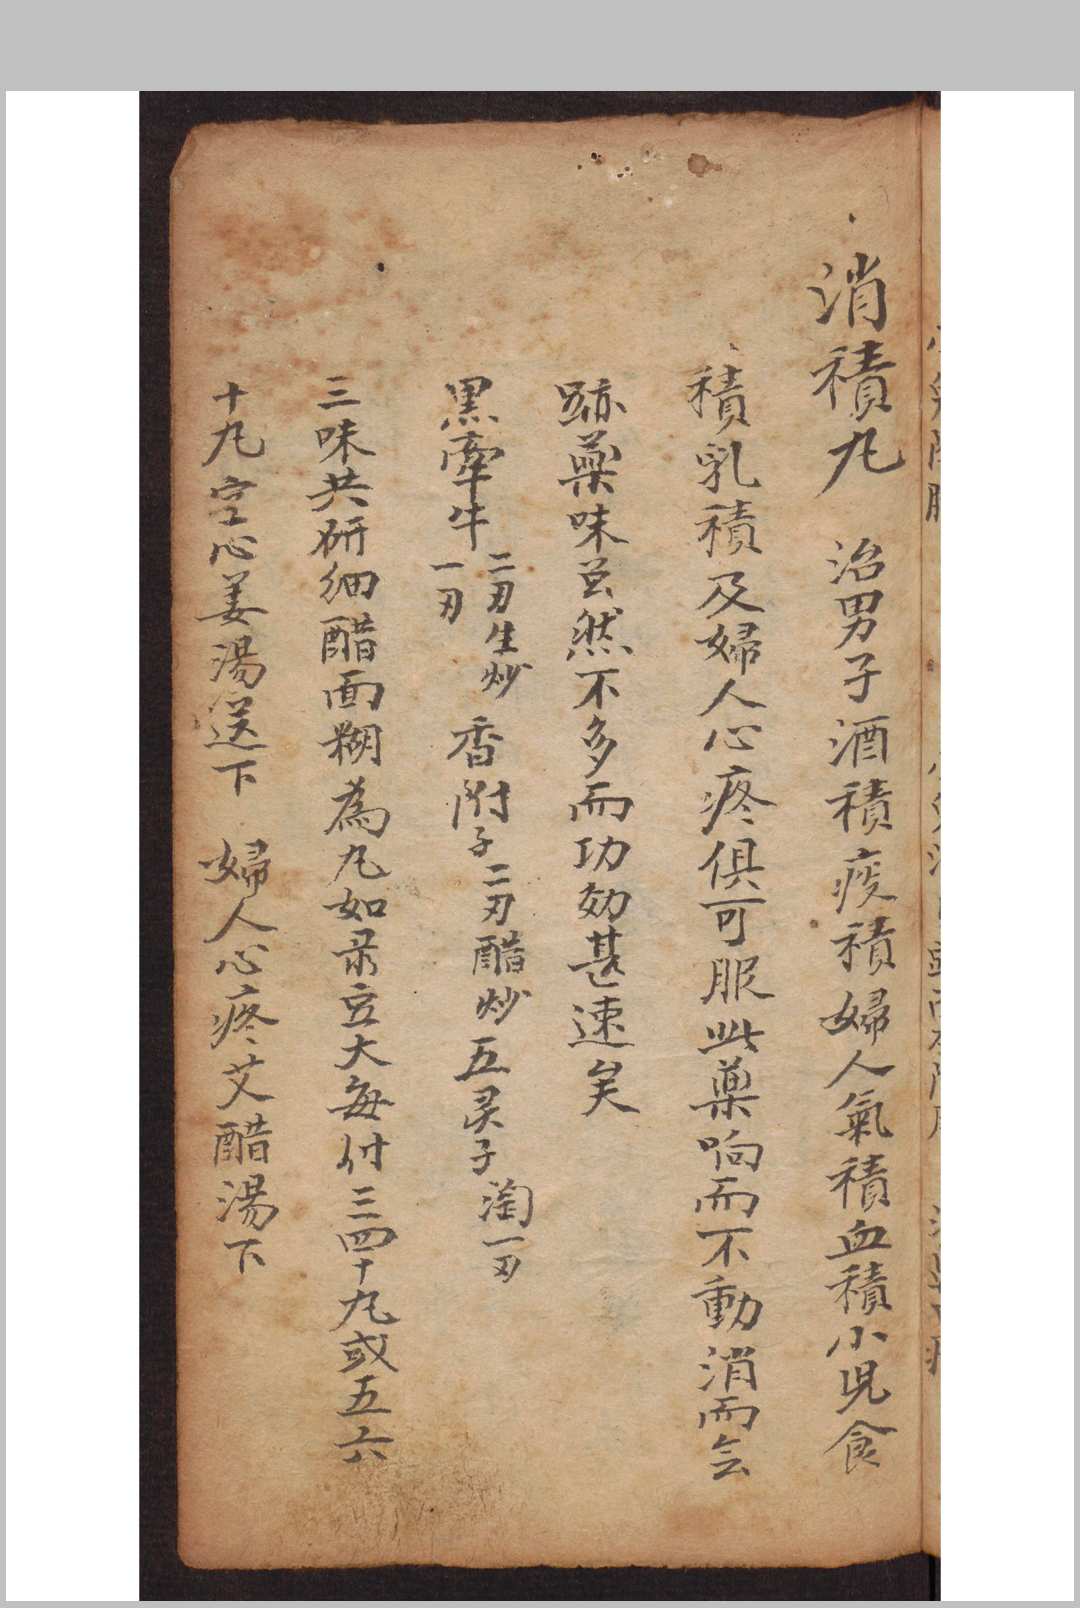 消積丸　治男子酒積痰積婦人氣積血積小児食
積乳積及婦人心疼俱可服此藥响而不動消而去
跡藥味虽然不多而功効甚速矣
黒牽牛二刃生炒一刃　香附子二刃醋炒　五灵子淘一刃
三味共研細醋面糊為丸如菉豆大每付三四十丸或五六
十丸空心姜湯送下　婦人心疼艾醋湯下